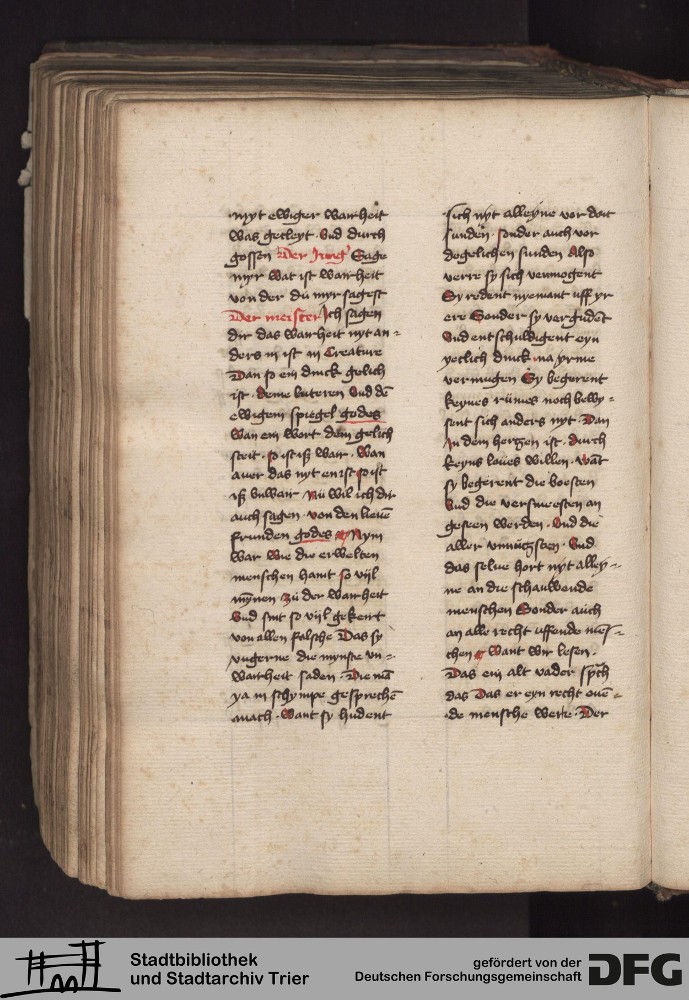 myt ewiger wairheit
was gecleyt. Vnd durch
gossen Der Jung' Sage
myr wat ist wairheit
von der du myr sagest
Der meister Jch sagen
dir das wairheit nyt an-
ders in ist in Creature
Dan so ein dinck gelich
ist. deme luteren Vnd dē
ewigem spiegel godes
Wan ein wort dem gelich
steit. so ist iß wair. Wan
auer das nyt en ist so ist
iß vnwair Nu wil ich dir
auch sagen. von den lieuē
frunden godes Nym
war wie die erwelten
menschen hant so vijl
mȳnen zu der wairheit
Vnd sint so vijl gekeirt
von allen falsche Das sy
vngerne die mynste vn-
wairheit saden. Die mā
ya in schympe gesprechē
mach. Want sy hudent
sich nyt alleyne vor doit
sunden. sonder auch vor
degelichen sunden Also
verre sy sich vermogent
Sy redent nyemant uff yr
ere Sonder sy vergudent
Vnd entschuldigent eyn
yeclich dinck. na yrme
vermugen Sy begerent
keynes rumes noch bewy-
sent sich anders nyt. Dan
Jn dem hertzen ist. durch
keyns loues willen. want
sy begerent die boesten
Vnd die versmeesten an
geseen werden. Vnd die
aller vnnutzsten. Vnd
das selue hort nyt alley-
ne an die schauwende
menschen Sonder auch
an alle recht uffende mēs-
chen Want wir lesen.
Das ein alt vader sprach
das Das er eyn recht oue-
de mensche were. Der
Stadtbibliothek
und Stadtarchiv Trier
gefördert von der
Deutschen Forschungsgemeinschaft
DFG